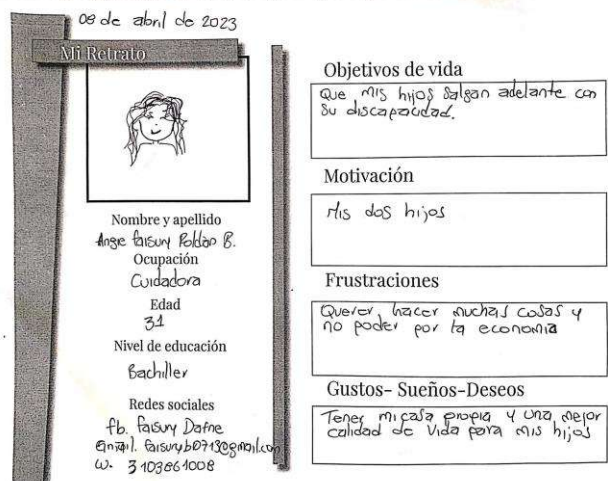 08 de abril de 2023
Mi Retrato
Nombre y apellido
Angie faisury Roldan B.
Ocupación
Cuidadora
Edad
31
Nivel de educación
Bachiller
Redes sociales
fb. faisury Dafne
Email. faisuryb0713@gmail.com
w. 3103861008
Objetivos de vida
Que mis hijos salgan adelante con
su discapacidad.
Motivación
Mis dos hijos
Frustraciones
Querer hacer muchas cosas y
no poder por la economia
Gustos- Sueños-Deseos
Tener mi casa propia y una mejor
calidad de vida para mis hijos